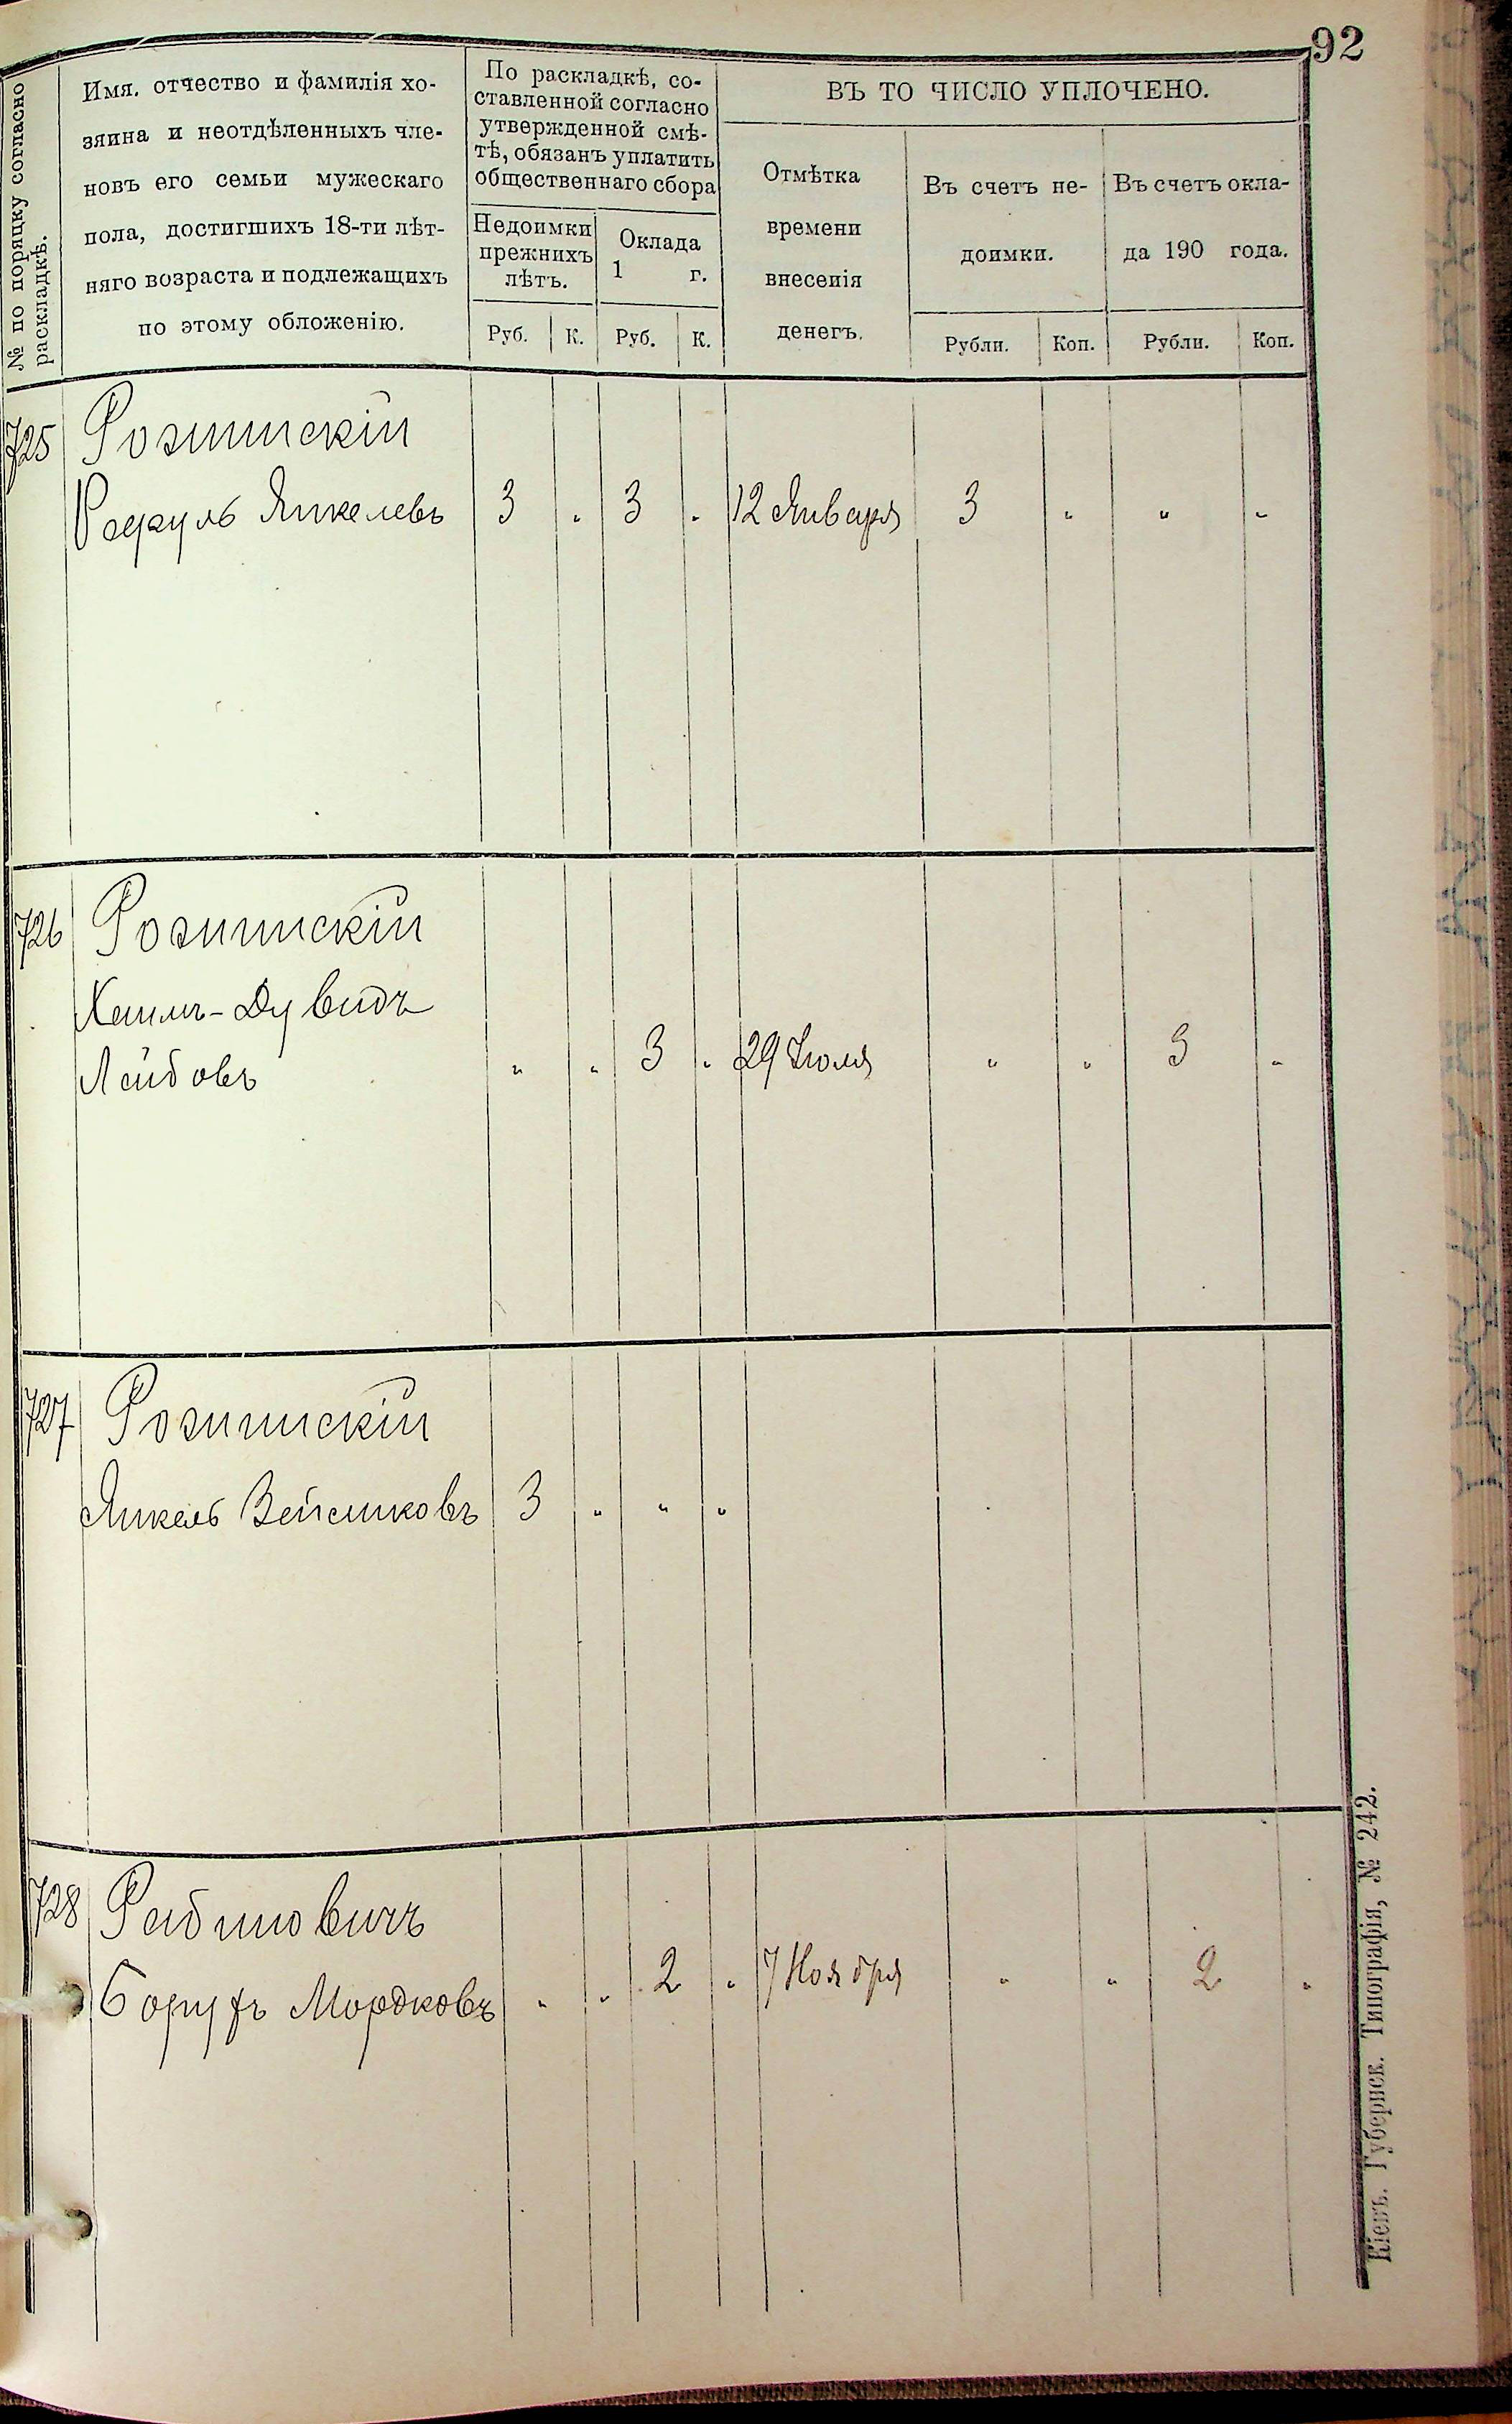 92
№ по порядку согласно
раскладкѣ.
Имя. отчество и фамилія хо-
зяина и неотдѣленныхъ чле-
новъ его семьи мужескаго
пола, достигшихъ 18-ти лѣт-
няго возраста и подлежащихъ
по этому обложенію.
По раскладкѣ, со-
ставленной согласно
утвержденной смѣ-
тѣ, обязанъ уплатить
общественнаго сбора
Недоимки
прежнихъ
лѣтъ.
Оклада
1 г.
Руб. К. Руб. К.
ВЪ ТО ЧИСЛО УПЛОЧЕНО.
Отмѣтка
времени
внесенія
денегъ.
Въ счетъ не-
доимки.
Въ счетъ окла-
да 190 года.
Рубли. Коп. Рубли. Коп.
725 Розинскій
Янкелевъ 3 „ 3 „ 12 Января 3 „ „ „
726 Розинскій
Хаимъ-Дувидъ
Лейбовъ „ „ 3 „ 29 Іюля „ „ 3 „
727 Розинскій
Янкель Зейликовъ 3 „ „ „
728 Рабиновичъ
Борухъ Мордковъ „ „ 2 „ 7 Ноября „ „ 2 „
Кіевъ. Губернск. Типографія, № 242.